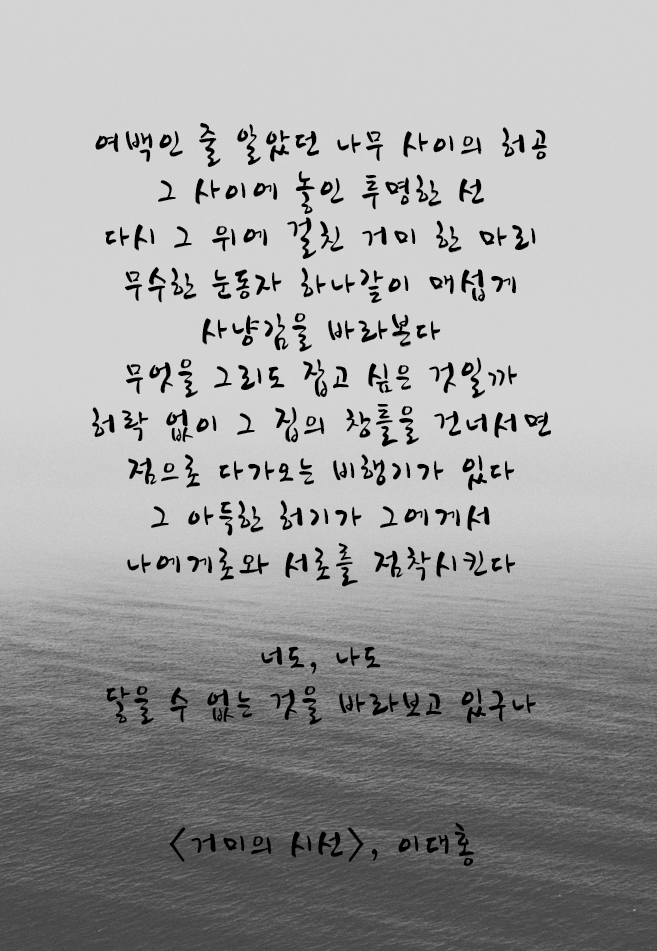 여백인 줄 알았던 나무 사이의 허공
그 사이에 놓인 투명한 선
다시 그 위에 걸친 거미 한 마리
무수한 눈동자 하나같이 매섭게
사냥감을 바라본다
무엇을 그리도 잡고 싶은 것일까
허락 없이 그 집의 창틀을 건너서면
점으로 다가오는 비행기가 있다
그 아득한 허기가 그에게서
나에게로와 서로를 점착시킨다
너도, 나도
닿을 수 없는 것을 바라보고 있구나
<거미의 시선>, 이대홍